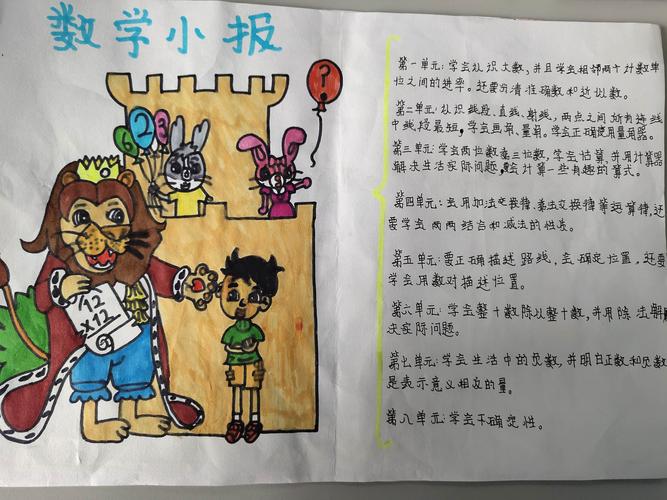 数学小报
?
6 2 3
12
×12
第一单元:学会认识大数,并且学会相邻两个计数单
位之间的进率。还要分清准确数和近似数。
第二单元:认识线段、直线、射线,两点之间所有连线
中线段最短,学会画角、量角。学会正确使用量角器。
第三单元:学会两位数乘三位数,学会估算,并用计算器
解决生活实际问题,会计算一些有趣的算式。
第四单元:会用加法交换律、乘法交换律等运算律,还
要学会两两结合和减法的性质。
第五单元:要正确描述路线,会确定位置,还要
学会用数对描述位置。
第六单元:学会整十数除以整十数,并用除法解
决实际问题。
第七单元:学会生活中的负数,并明白正数和负数
是表示意义相反的量。
第八单元:学会不确定性。